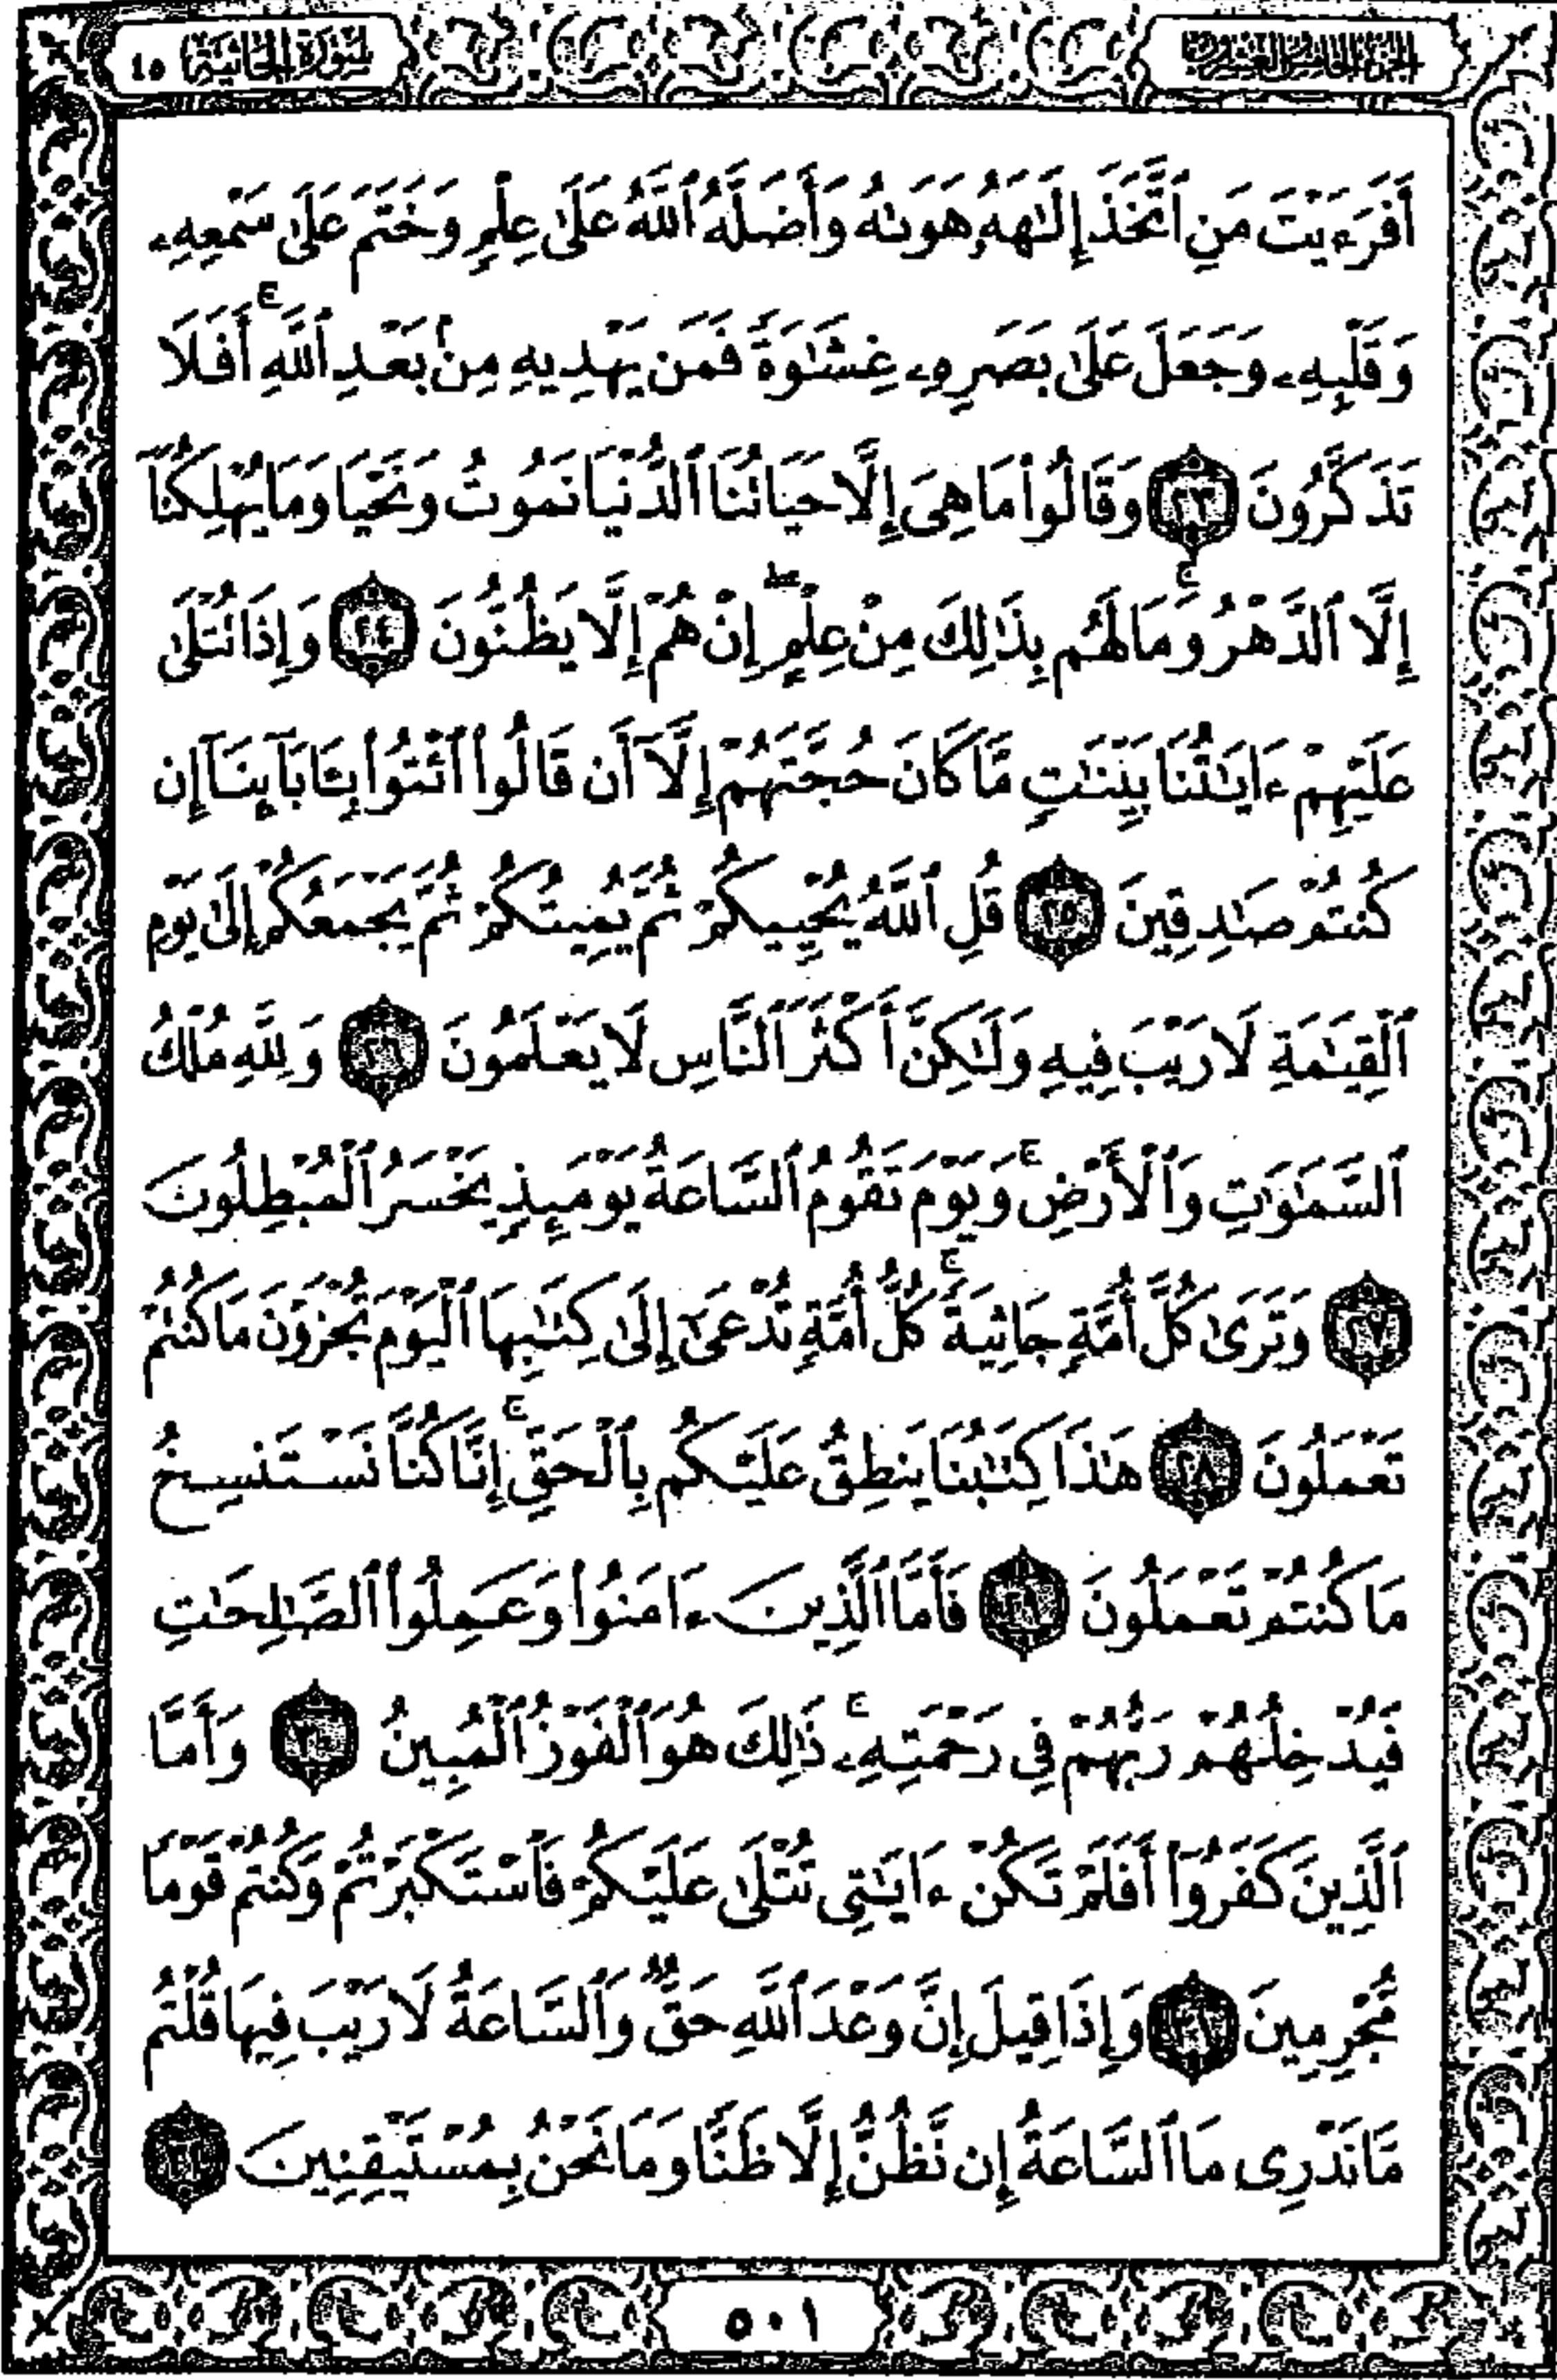 الجزء الخامس والعشرون
سورة الجاثية ٤٥
أَفَرَءَيْتَ مَنِ ٱتَّخَذَ إِلَٰهَهُۥ هَوَىٰهُ وَأَضَلَّهُ ٱللَّهُ عَلَىٰ عِلْمٍ وَخَتَمَ عَلَىٰ سَمْعِهِۦ
وَقَلْبِهِۦ وَجَعَلَ عَلَىٰ بَصَرِهِۦ غِشَٰوَةً فَمَن يَهْدِيهِ مِنۢ بَعْدِ ٱللَّهِ ۚ أَفَلَا
تَذَكَّرُونَ ٢٣ وَقَالُوا۟ مَا هِىَ إِلَّا حَيَاتُنَا ٱلدُّنْيَا نَمُوتُ وَنَحْيَا وَمَا يُهْلِكُنَآ
إِلَّا ٱلدَّهْرُ ۚ وَمَا لَهُم بِذَٰلِكَ مِنْ عِلْمٍ ۖ إِنْ هُمْ إِلَّا يَظُنُّونَ ٢٤ وَإِذَا تُتْلَىٰ
عَلَيْهِمْ ءَايَٰتُنَا بَيِّنَٰتٍ مَّا كَانَ حُجَّتَهُمْ إِلَّآ أَن قَالُوا۟ ٱئْتُوا۟ بِـَٔابَآئِنَآ إِن
كُنتُمْ صَٰدِقِينَ ٢٥ قُلِ ٱللَّهُ يُحْيِيكُمْ ثُمَّ يُمِيتُكُمْ ثُمَّ يَجْمَعُكُمْ إِلَىٰ يَوْمِ
ٱلْقِيَٰمَةِ لَا رَيْبَ فِيهِ وَلَٰكِنَّ أَكْثَرَ ٱلنَّاسِ لَا يَعْلَمُونَ ٢٦ وَلِلَّهِ مُلْكُ
ٱلسَّمَٰوَٰتِ وَٱلْأَرْضِ ۚ وَيَوْمَ تَقُومُ ٱلسَّاعَةُ يَوْمَئِذٍ يَخْسَرُ ٱلْمُبْطِلُونَ
٢٧ وَتَرَىٰ كُلَّ أُمَّةٍ جَاثِيَةً ۚ كُلُّ أُمَّةٍ تُدْعَىٰٓ إِلَىٰ كِتَٰبِهَا ٱلْيَوْمَ تُجْزَوْنَ مَا كُنتُمْ
تَعْمَلُونَ ٢٨ هَٰذَا كِتَٰبُنَا يَنطِقُ عَلَيْكُم بِٱلْحَقِّ ۚ إِنَّا كُنَّا نَسْتَنسِخُ
مَا كُنتُمْ تَعْمَلُونَ ٢٩ فَأَمَّا ٱلَّذِينَ ءَامَنُوا۟ وَعَمِلُوا۟ ٱلصَّٰلِحَٰتِ
فَيُدْخِلُهُمْ رَبُّهُمْ فِى رَحْمَتِهِۦ ۚ ذَٰلِكَ هُوَ ٱلْفَوْزُ ٱلْمُبِينُ ٣٠ وَأَمَّا
ٱلَّذِينَ كَفَرُوٓا۟ أَفَلَمْ تَكُنْ ءَايَٰتِى تُتْلَىٰ عَلَيْكُمْ فَٱسْتَكْبَرْتُمْ وَكُنتُمْ قَوْمًا
مُّجْرِمِينَ ٣١ وَإِذَا قِيلَ إِنَّ وَعْدَ ٱللَّهِ حَقٌّ وَٱلسَّاعَةُ لَا رَيْبَ فِيهَا قُلْتُم
مَّا نَدْرِى مَا ٱلسَّاعَةُ إِن نَّظُنُّ إِلَّا ظَنًّا وَمَا نَحْنُ بِمُسْتَيْقِنِينَ ٣٢
٥٠١